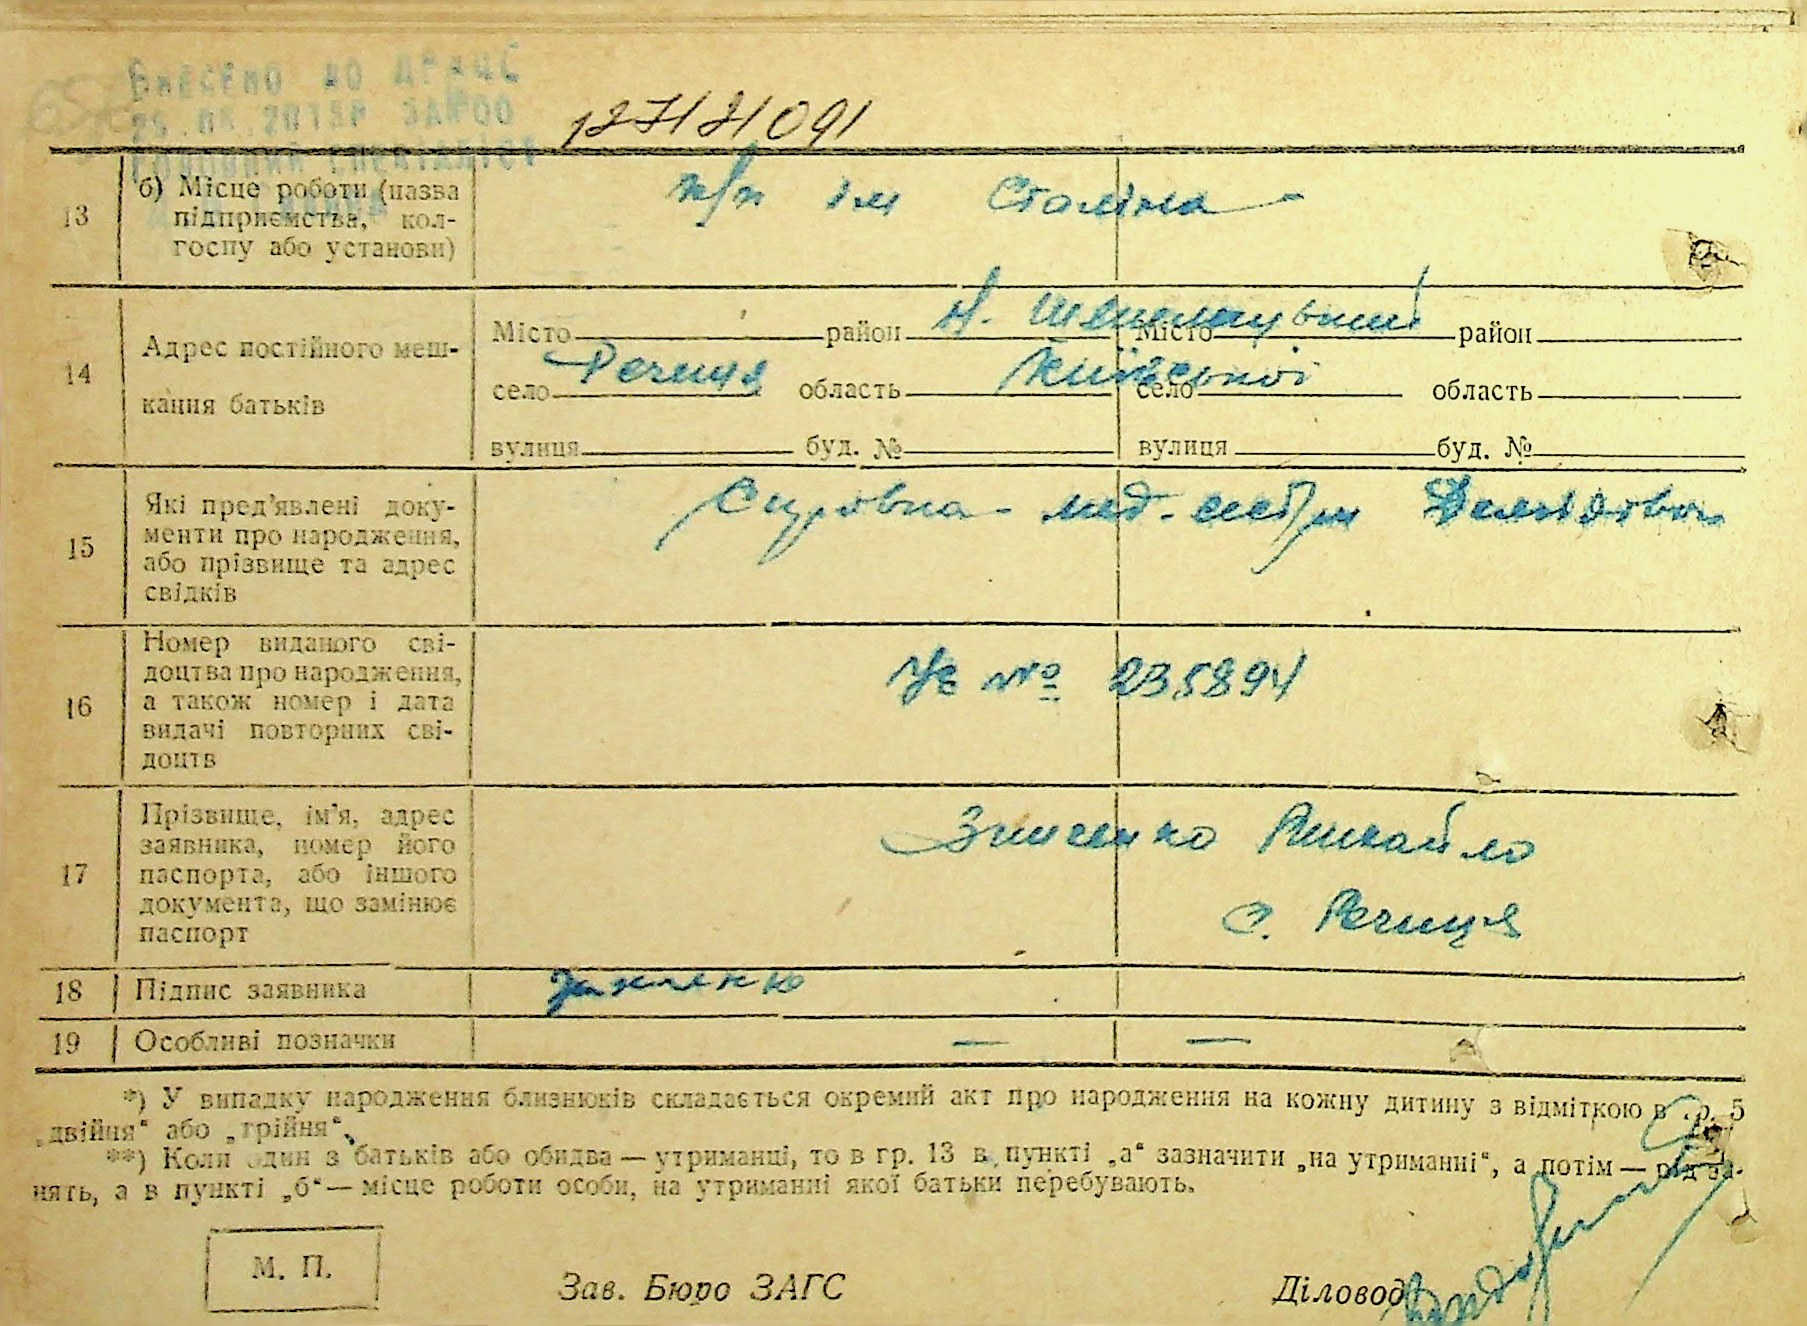 ВНЕСЕНО ДО ДРАЦС
127121091
13 б) Місце роботи (назва підприємства, кол-
госпу або установи)
к/г ім Сталіна
14 Адрес постійного меш-
кання батьків
Місто район Н. Шепелицький Місто район
село Речиця область Київської село область
вулиця буд. № вулиця буд. №
15 Які пред'явлені доку-
менти про народження,
або прізвище та адрес
свідків
мед. сестри Демидової
16 Номер виданого сві-
доцтва про народження,
а також номер і дата
видачі повторних сві-
доцтв
№ 235894
17 Прізвище, ім'я, адрес
заявника, номер його
паспорта, або іншого
документа, що замінює
паспорт
Зинченко Михайло
с. Речиця
18 Підпис заявника
19 Особливі позначки — —
*) У випадку народження близнюків складається окремий акт про народження на кожну дитину з відміткою в гр. 5
„двійня“ або „трійня“.
**) Коли один з батьків або обидва — утриманці, то в гр. 13 в пункті „а“ зазначити „на утриманні“, а потім — рід за-
нять, а в пункті „б“ — місце роботи особи, на утриманні якої батьки перебувають.
М. П.
Зав. Бюро ЗАГС Діловод